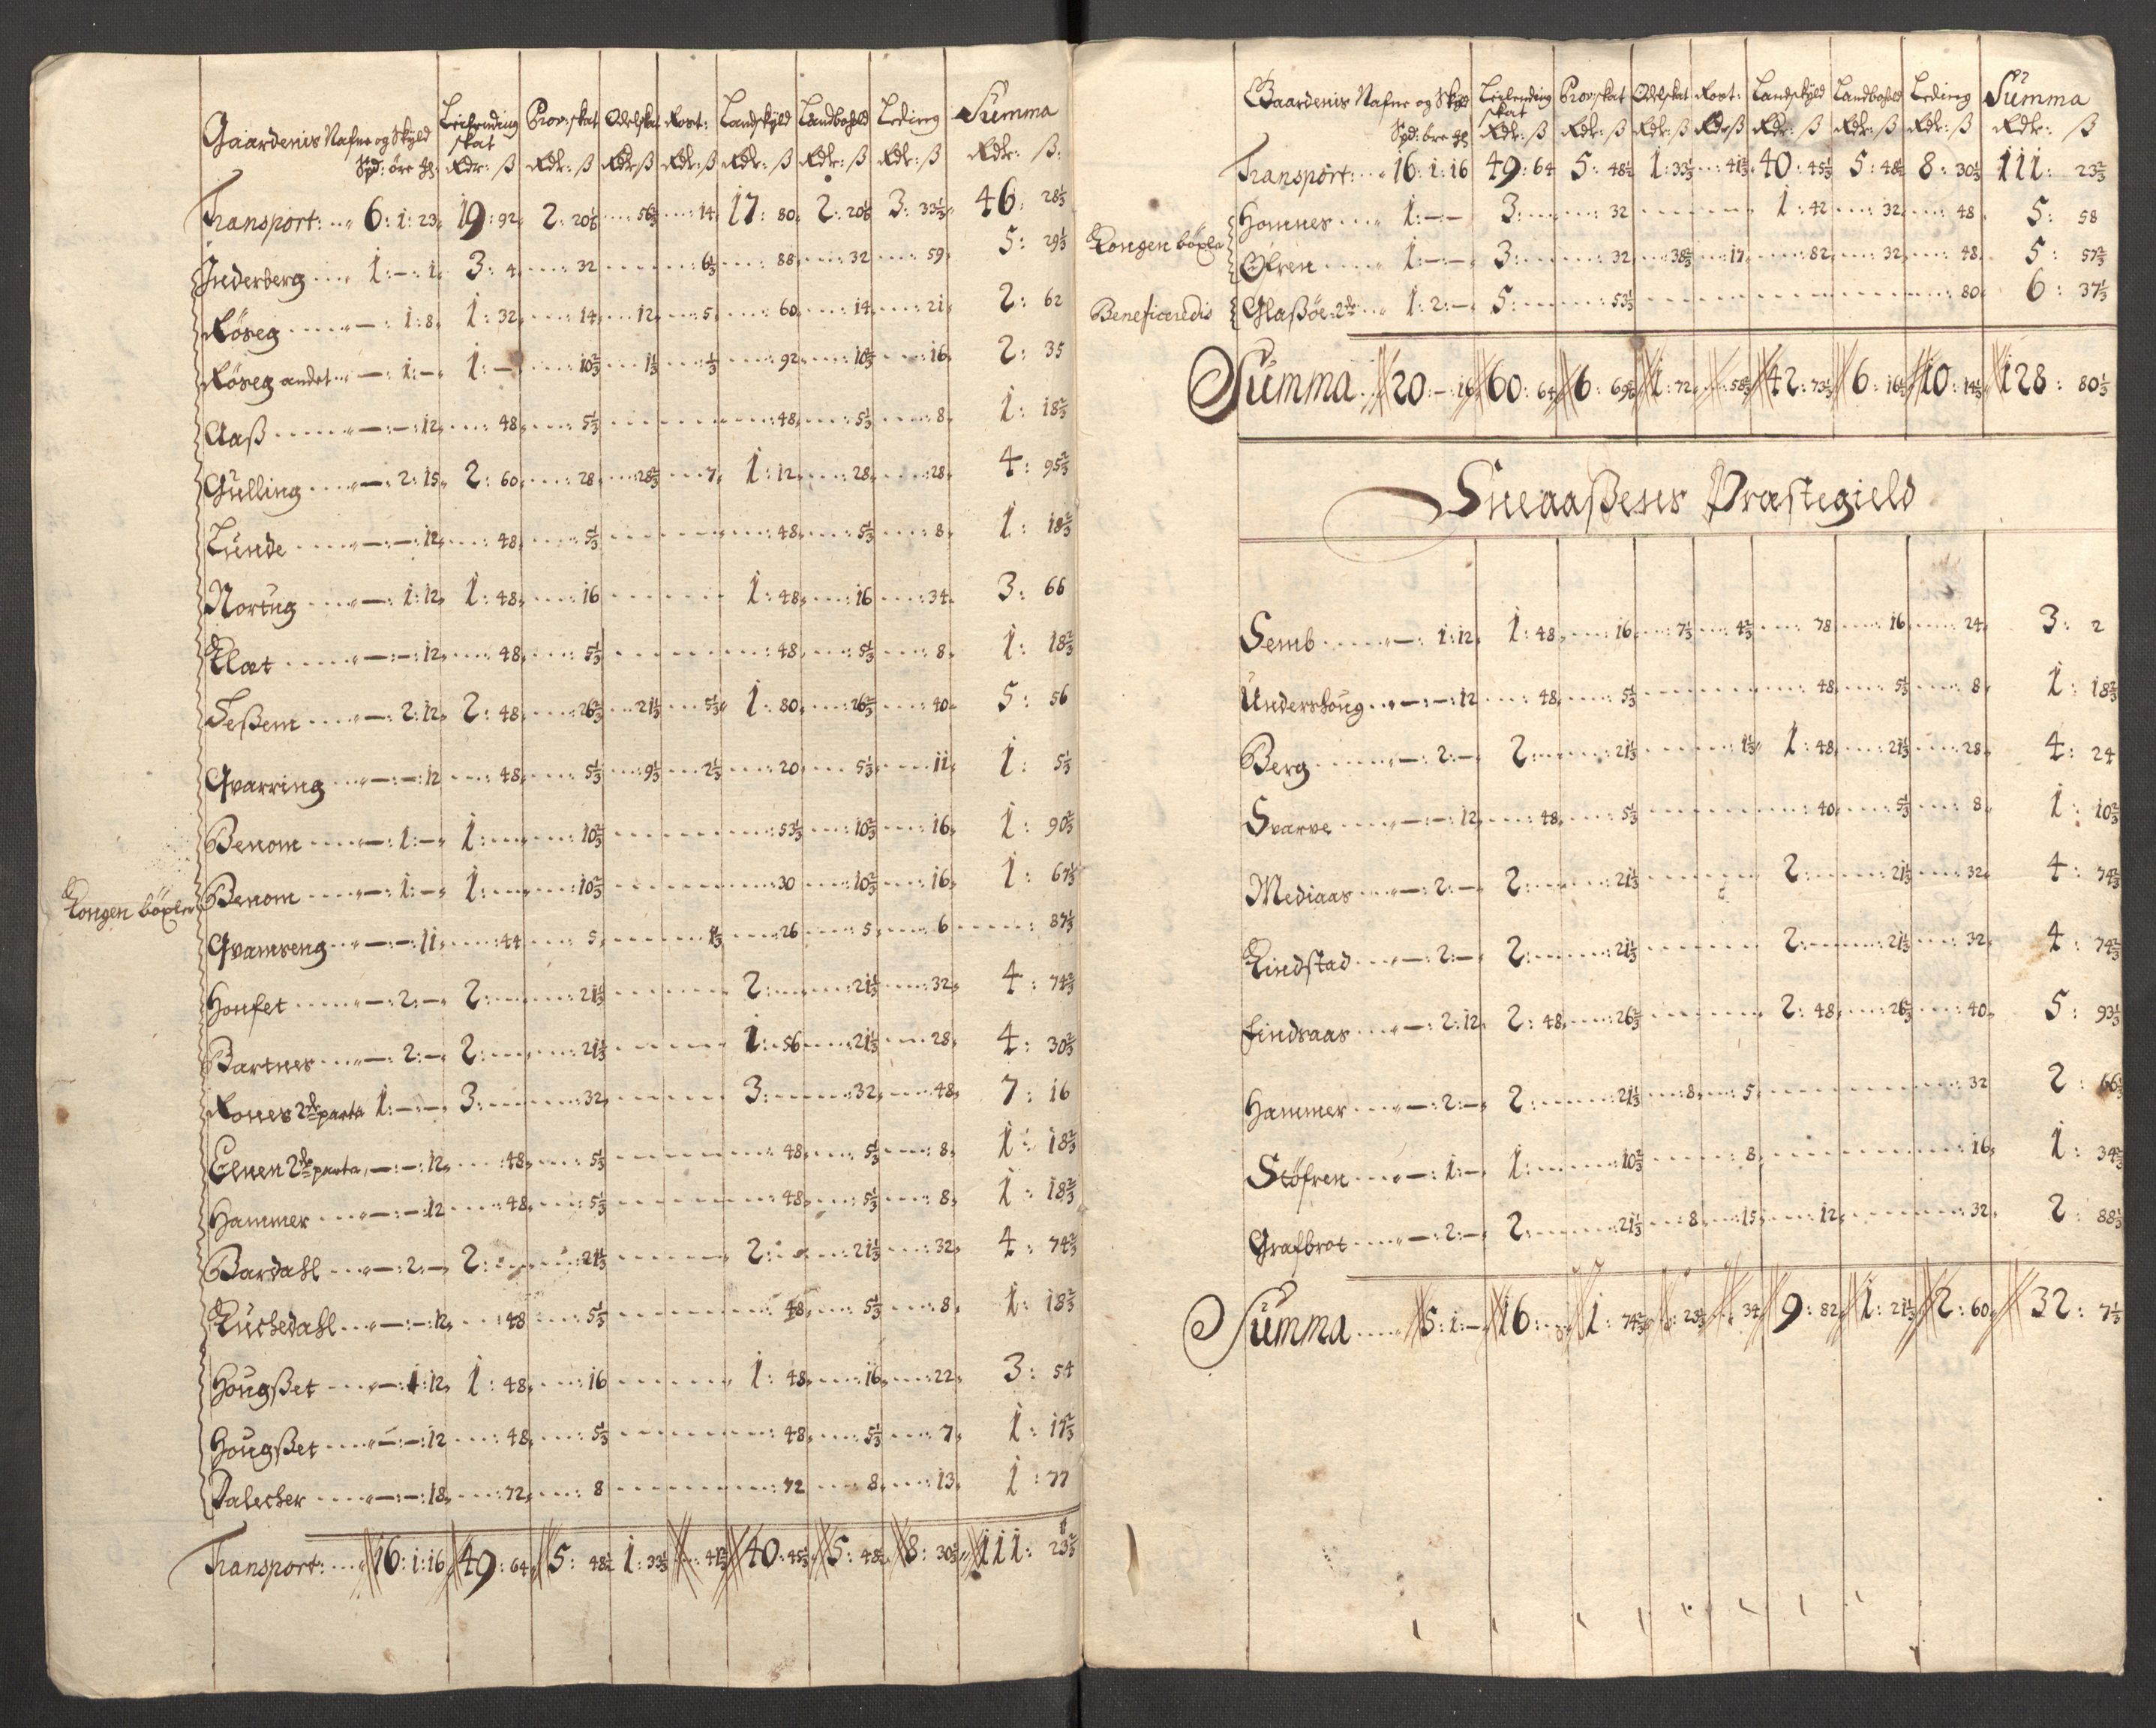 Gaardenis Nafne og Skyld Leilending skat Prov: skat Odelskat Rost: Landskyld Landbohld Leding Summa
Spd: öre ℔: Rdr: ß Rdr: ß Rdr ß Rdr: ß Rdr: ß Rdr: ß Rdr: ß Rdr: ß:
Transport: 6: 1: 23 19: 92 2: 20⅙ 56⅔ 14 17: 80 2: 20⅙ 3: 33⅓ 46: 28⅓
Inderberg 1: –: 1 3: 4 32 6⅓ 88 32 59 5: 29⅓
Röseg –: 1: 8 1: 32 14 12 5 60 14 21 2: 62
Röseg andet –: 1: – 1: – 10⅔ 1⅓ ⅓ 92 10⅔ 16 2: 35
Aaß –: –: 12 48 5⅓ 48 5⅓ 8 1: 18⅔
Gulling –: 2: 15 2: 60 28 28⅔ 7 1: 12 28 28 4: 95⅔
Lunde –: –: 12 48 5⅓ 48 5⅓ 8 1: 18⅔
Nortug –: 1: 12 1: 48 16 1: 48 16 34 3: 66
Klæt –: –: 12 48 5⅓ 48 5⅓ 8 1: 18⅔
Seßem –: 2: 12 2: 48 26⅔ 21⅓ 5⅓ 1: 80 26⅔ 40 5: 56
Qvarring –: –: 12 48 5⅓ 9⅓ 2⅓ 20 5⅓ 11 1: 5⅓
Benom –: 1: – 1: 10⅔ 53⅓ 10⅔ 16 1: 90⅔
Kongen böxler Benom –: 1: – 1: 10⅔ 30 10⅔ 16 1: 67⅓
Qvamseng –: –: 11 44 5 1⅓ 26 5 6 87⅓
Houfet –: 2: – 2: 21⅓ 2: 21⅓ 32 4: 74⅔
Bartnes –: 2: – 2: 21⅓ 1: 56 21⅓ 28 4: 30⅔
Rones 2de parta 1: –: – 3: 32 3: 32 48 7: 16
Elnen 2de parta –: –: 12 48 5⅓ 48 5⅓ 8 1: 18⅔
Hammer –: –: 12 48 5⅓ 48 5⅓ 8 1: 18⅔
Bardahl –: 2: – 2: 21⅓ 2: 21⅓ 32 4: 74⅔
Kuchedahl –: –: 12 48 5⅓ 48 5⅓ 8 1: 18⅔
Hougßet –: 1: 12 1: 48 16 1: 48 16 22 3: 54
Hougßet –: –: 12 48 5⅓ 48 5⅓ 7 1: 17⅔
Valecher –: –: 18 72 8 72 8 13 1: 77
Transport: 16: 1: 16 49: 64 5: 48½ 1: 33⅓ 41⅔ 40: 45⅓ 5: 48½ 8: 30⅓ 111: 23⅔
Gaardenis Nafne og Skyld Leilending skat Prov: skat Odelskat Rost: Landskyld Landbohld Leding Summa
Spd: öre ℔ Rdr: ß Rdr: ß Rdr: ß Rdr ß Rdr: ß Rdr: ß Rdr: ß Rdr: ß
Transport: 16: 1: 16 49: 64 5: 48½ 1: 33⅓ 41⅔ 40: 45⅓ 5: 48½ 8: 30⅓ 111: 23⅔
Homnes 1: –: – 3: 32 1: 42 32 48 5: 58
Kongen böxler Öfren 1: –: – 3: 32 38⅔ 17 82 32 48 5: 57⅔
Beneficeredis Glaßöe: 2de 1: 2: – 5: 53⅓ 80 6: 37⅓
Summa 20: –: 16 60: 64 6: 69⅚ 1: 72 58⅔ 42: 73⅓ 6: 16½ 10: 14⅓ 128: 80⅓
Sneaaßens Præstegield
Semb –: 1: 12 1: 48 16 7⅓ 4⅔ 78 16 24 3: 2
Undershoug –: –: 12 48 5⅓ 48 5⅓ 8 1: 18⅔
Berg –: 2: – 2: 21⅓ 1⅓ 1: 48 21⅓ 28 4: 24
Svarve –: –: 12 48 5⅓ 40 5⅓ 8 1: 10⅔
Mediaas –: 2: – 2: 21⅓ 2: 21⅓ 32 4: 74⅔
Kindstad –: 2: – 2: 21⅓ 2: 21⅓ 32 4: 74⅔
Findsaas –: 2: 12 2: 48 26⅔ 2: 48 26⅔ 40 5: 93⅓
Hammer –: 2: – 2: 21⅓ 8 5 32 2: 66⅓
Stöfren –: 1: – 1: 10⅔ 8 16 1: 34⅔
Grafbrot –: 2: – 2: 21⅓ 8 15 12 32 2: 88⅓
Summa 5: 1: – 16: 1: 74⅔ 23⅓ 34 9: 82 1: 21⅓ 2: 60 32: 7⅓